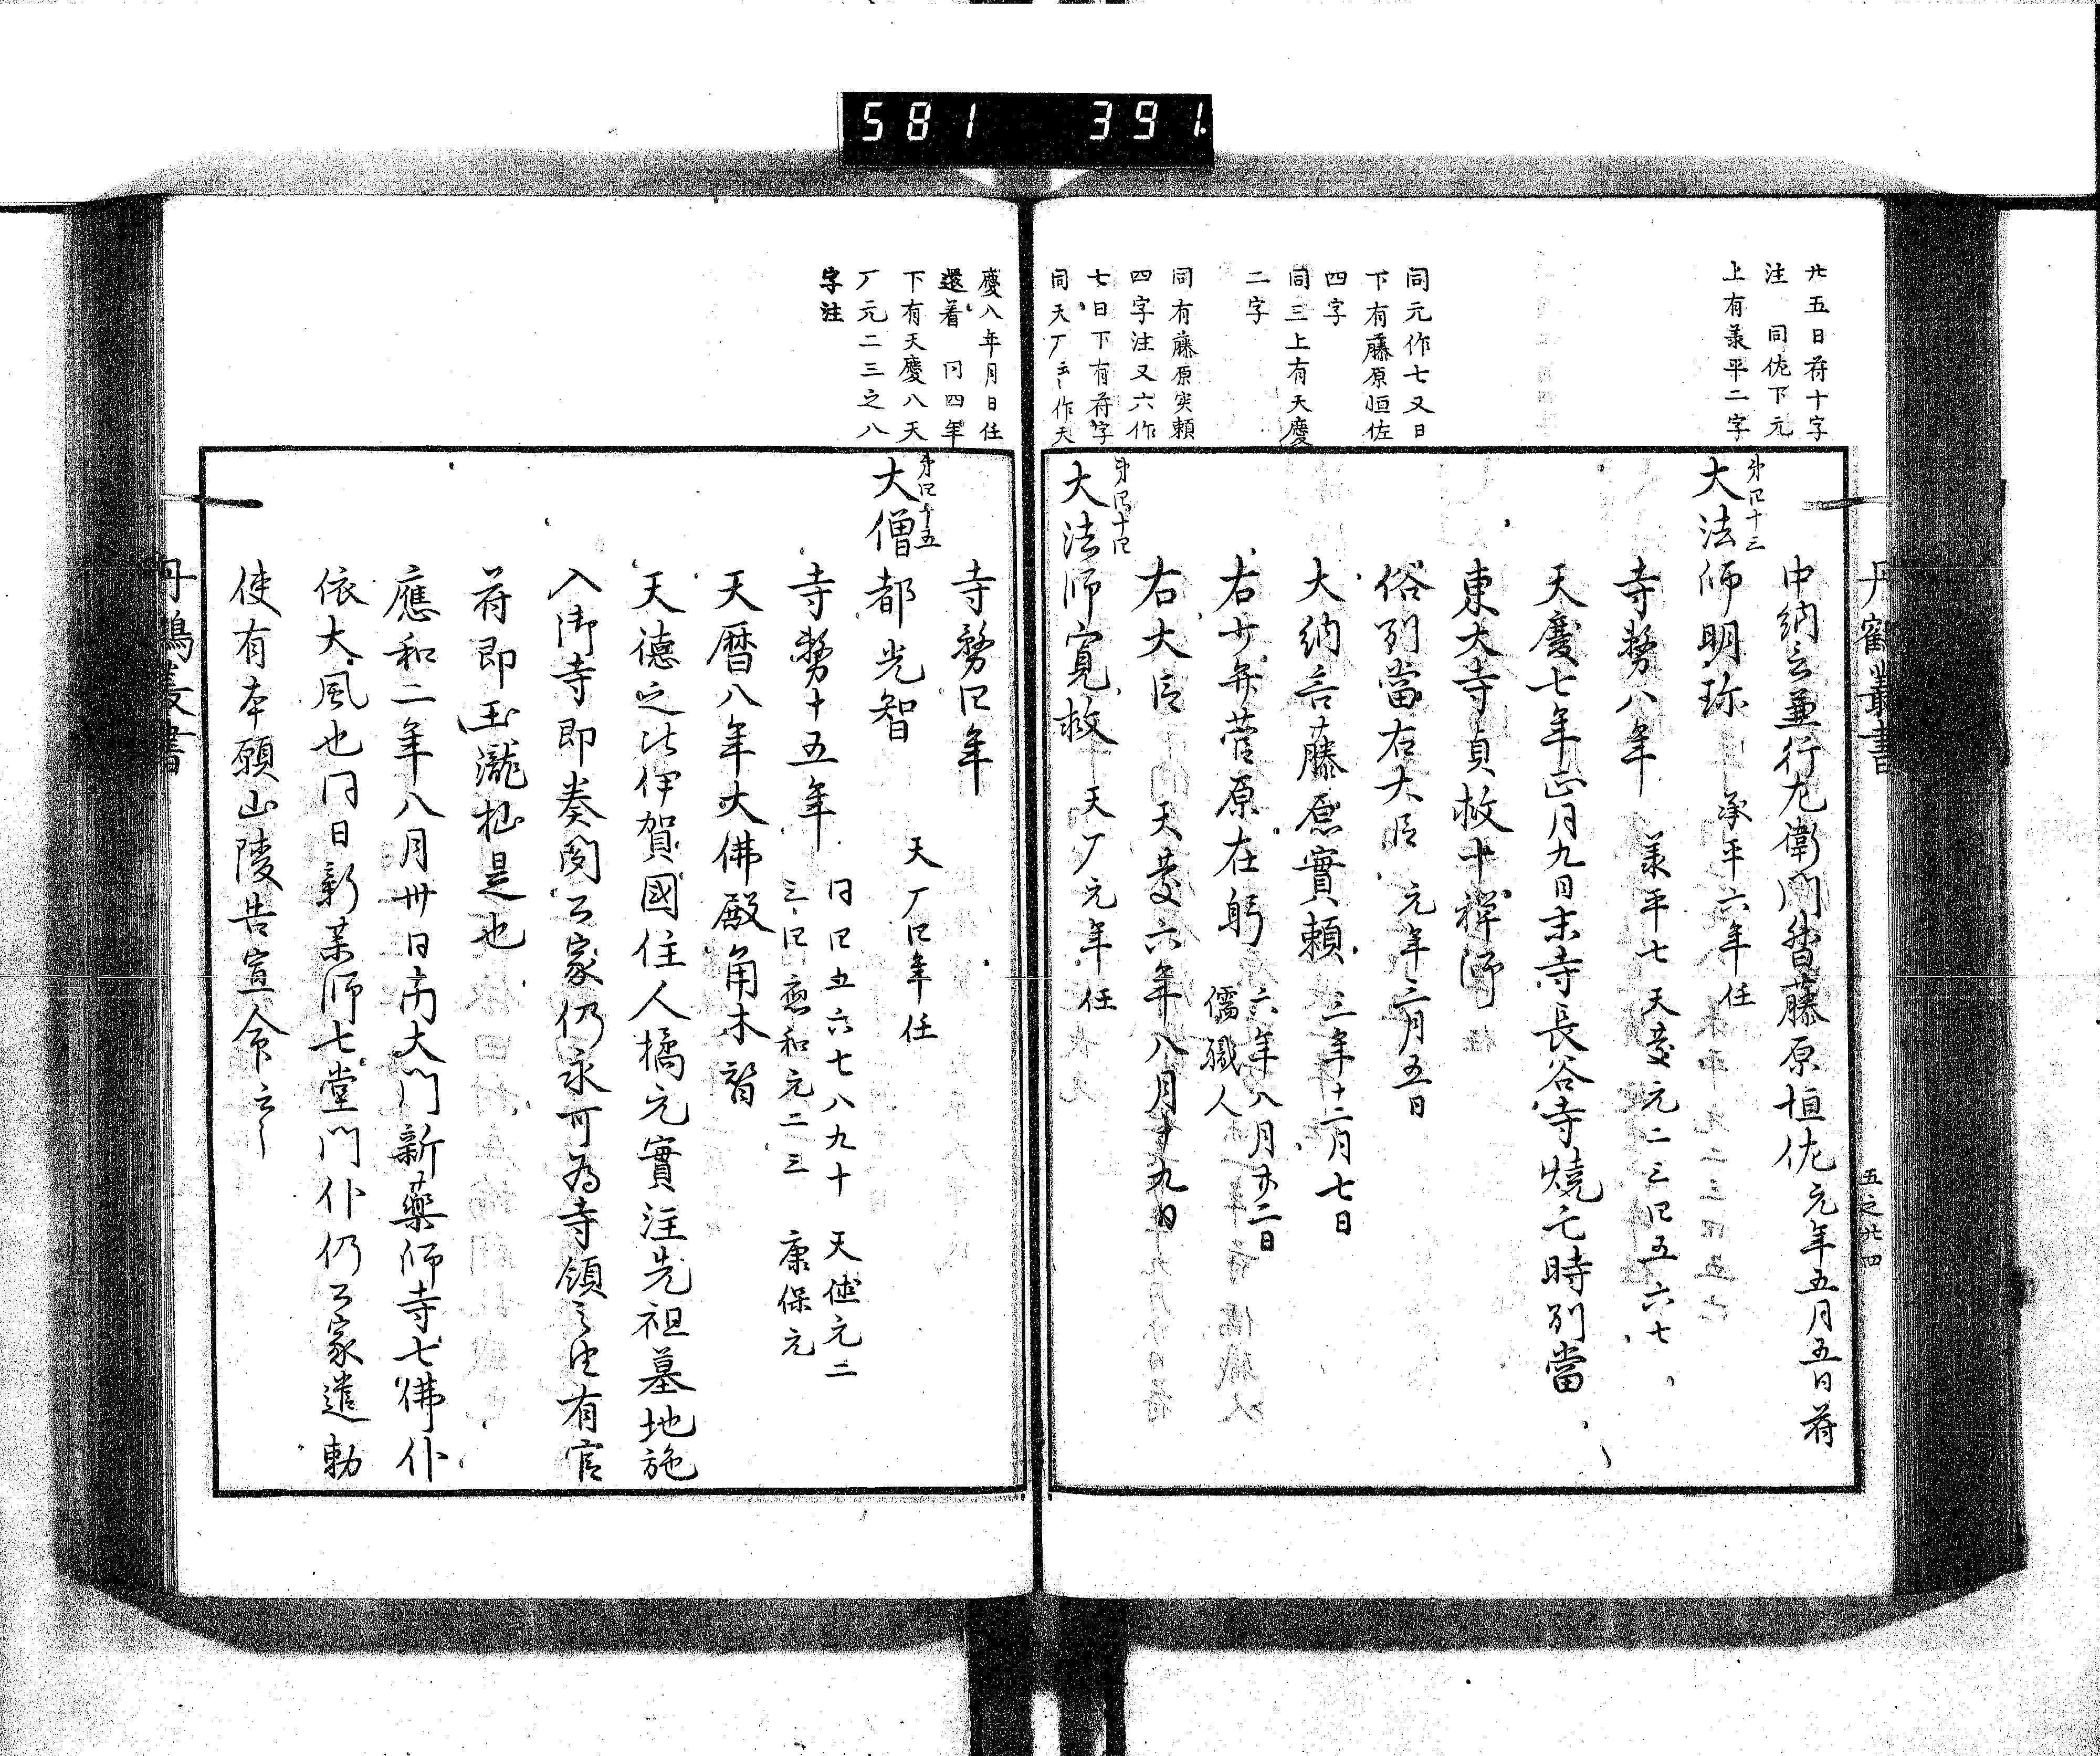 581 391.
丹鶴叢書
五之廿四
廿五日苻十字
注 同佐下元
上有羕平二字
同元作七又日
下有藤原恒佐
四字
同三上有天慶
二字
同有藤原実頼
四字注又六作
七日下有苻字
同天厂云〻作天
中納言兼行左衛門督藤原恒佐 元年五月五日苻
苐四十三
大法師明珎 承平六年任
寺務八年 羕平七 天慶元二三四五六七
天慶七年正月九日末寺長谷寺燒亡時別當
東大寺貞救十禅師
俗別當右大臣 元年三月五日
大納言藤原實頼 三年十二月七日
右少弁菅原在躬 六年八月廿二日
儒職人
右大臣 天慶六年八月十九日
苐四十四
大法師寛救 天厂元年任
慶八年月日任
還着 同四年
下有天慶八天
厂元二三之八
字注
寺務四年
苐四十五
大僧都光智 天厂四年任
寺務十五年 同四五六七八九十 天德元二
三四 應和元二三 康保元
天暦八年大佛殿角木替
天德之比伊賀國住人橘元實注先祖墓地施
入御寺即奏聞公家仍永可為寺領之由有官
苻即玉瀧杣是也
應和二年八月卅日南大門新藥師寺七佛仆
依大風也同日新薬師七堂門仆仍公家遣勅
使有本願山陵告宣命云〻
丹鶴叢書